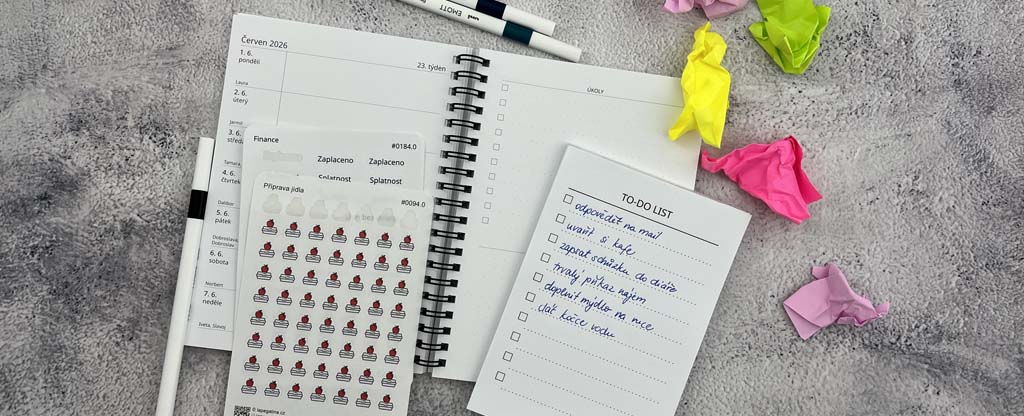 uni EMOTT
Červen 2026
1. 6.
pondělí
23. týden
Laura
2. 6.
úterý
Jarmil
3. 6.
středa
Tamara
4. 6.
čtvrtek
Dalibor
5. 6.
pátek
Dobroslava,
Dobroslav
6. 6.
sobota
Norbert
7. 6.
neděle
Iveta, Slavoj
ÚKOLY
Finance
#0184.0
Zaplaceno Zaplaceno
Splatnost Splatnost
Příprava jídla
#0094.0
© lapegatina.cz
TO-DO LIST
odpovědět na mail
uvařit si kafe
zapsat schůzku do diáře
trvalý příkaz nájem
doplnit mýdlo na ruce
dát kočce vodu